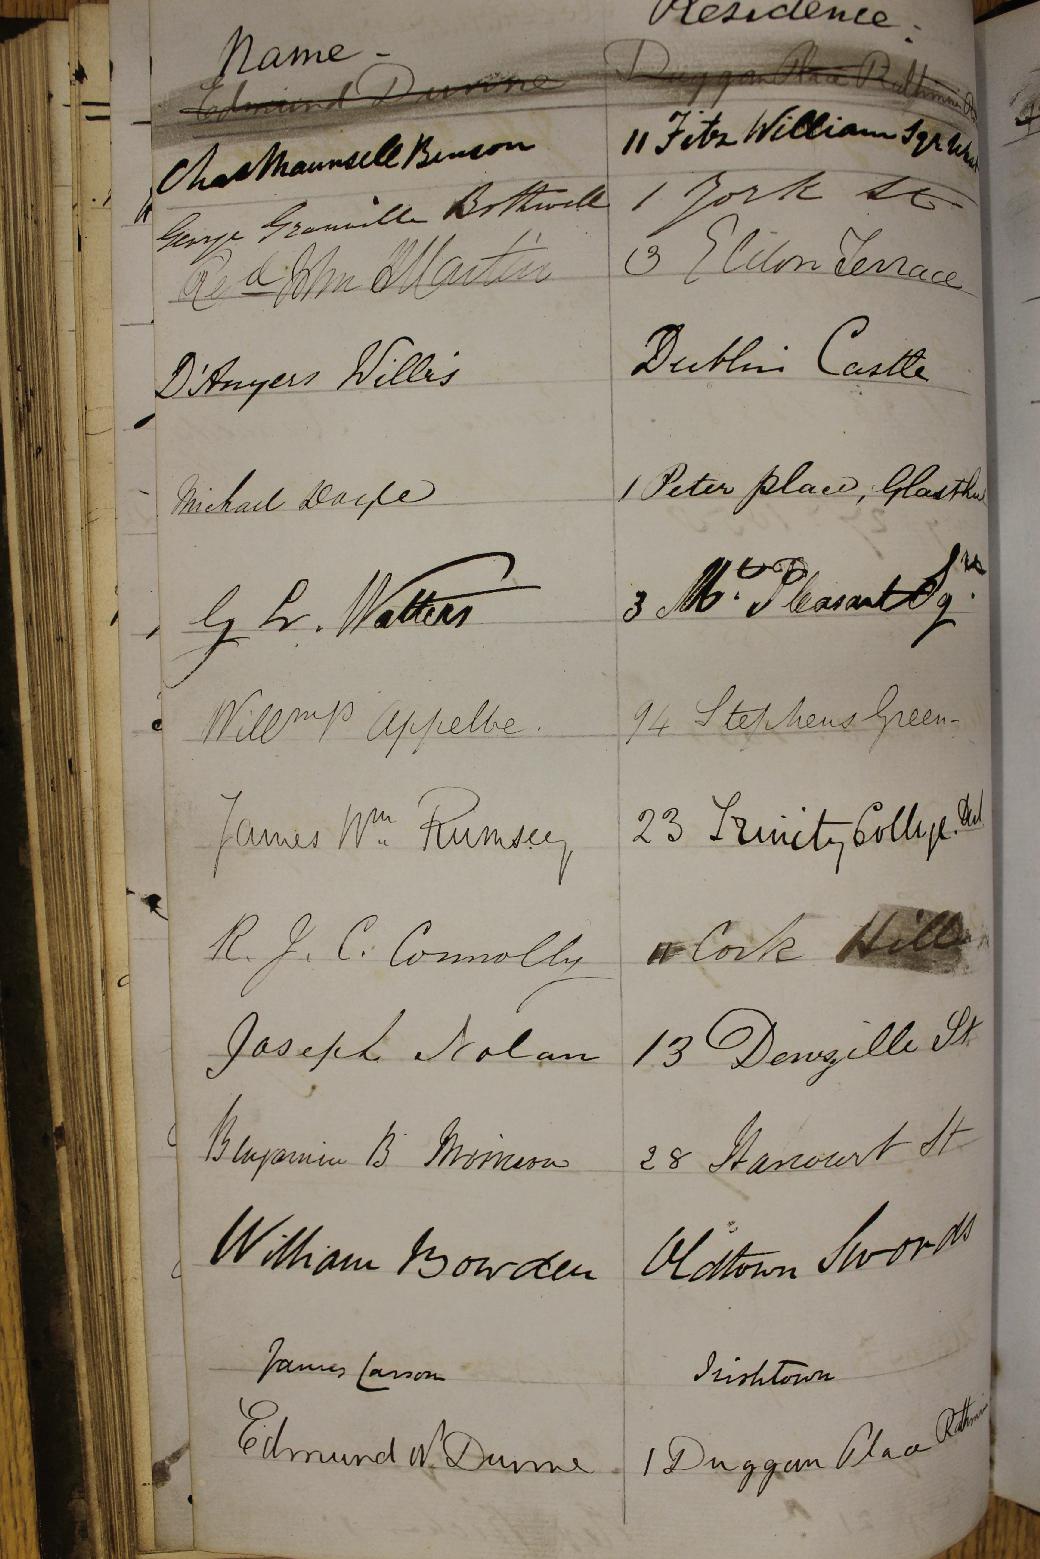 Name - Residence :
Edmund Dunne Duggan Place Rathmines
Chas Maunsell Benson 11 Fitz William Sqr West
George Granville Bothwell 1 York St
Revd John Martin 13 Eldon Terrace
D'Anyers Willis Dublin Castle
Michael Doyle 1 Peter place, Glasthu
G W. Watters 3 Mt. Pleasant Sqre
Willm P Appelbe. 94 Stephens Green-
James Wm Rumsey 23 Trinity College. Dub
R. J. C. Connolly 11 Cork Hill
Joseph Nolan 13 Denzille St
Benjamin B Morrison 28 Harcourt St
William Bowden Oldtown Swords
James Carson Irishtown
Edmund W. Dunne 1 Duggan Place Rathmines